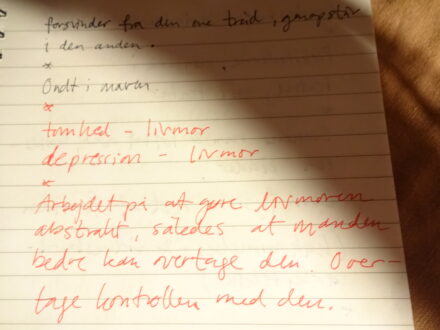 forsvinder fra den ene tråd, genopstår
i den anden.
*
Ondt i maven
*
tomhed - livmor
depression - livmor
*
Arbejdet på at gøre livmoren
abstrakt, således at manden
bedre kan overtage den. Over-
tage kontrollen med den.